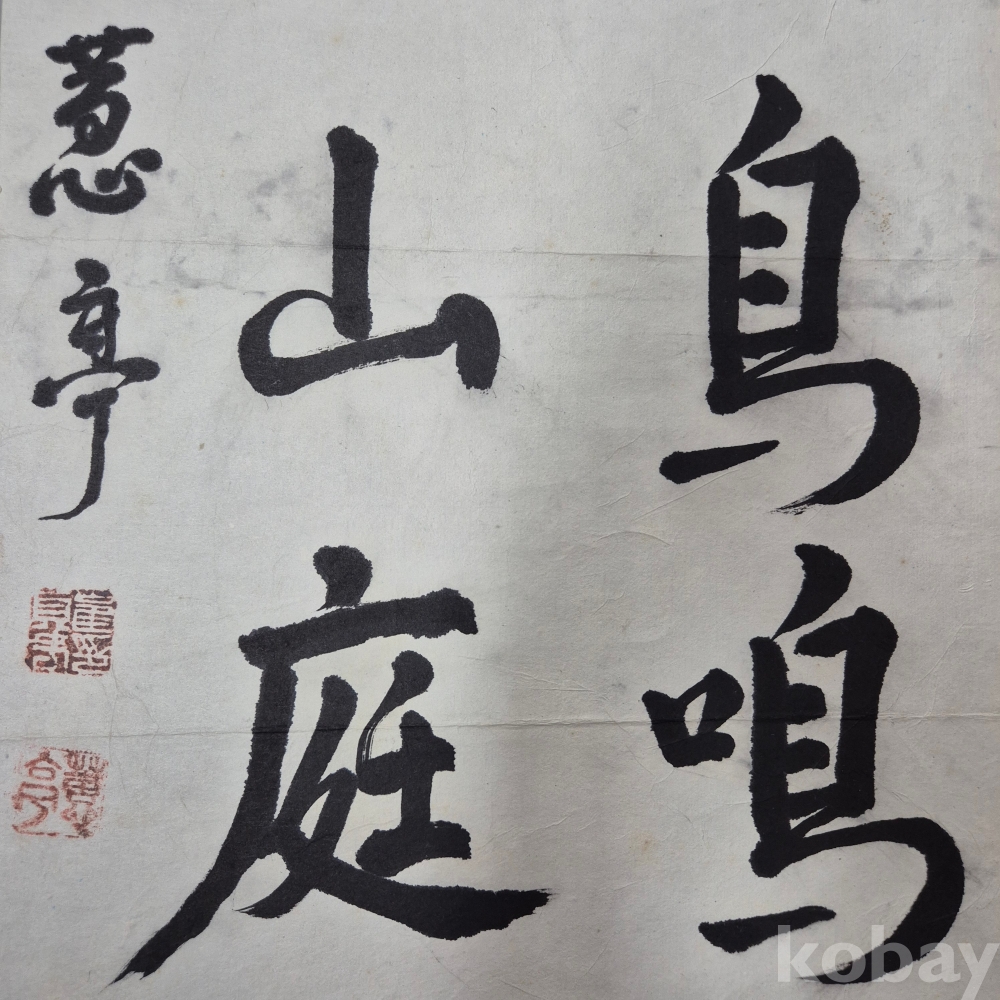 鳥鳴
山庭
蕙亭
kobay